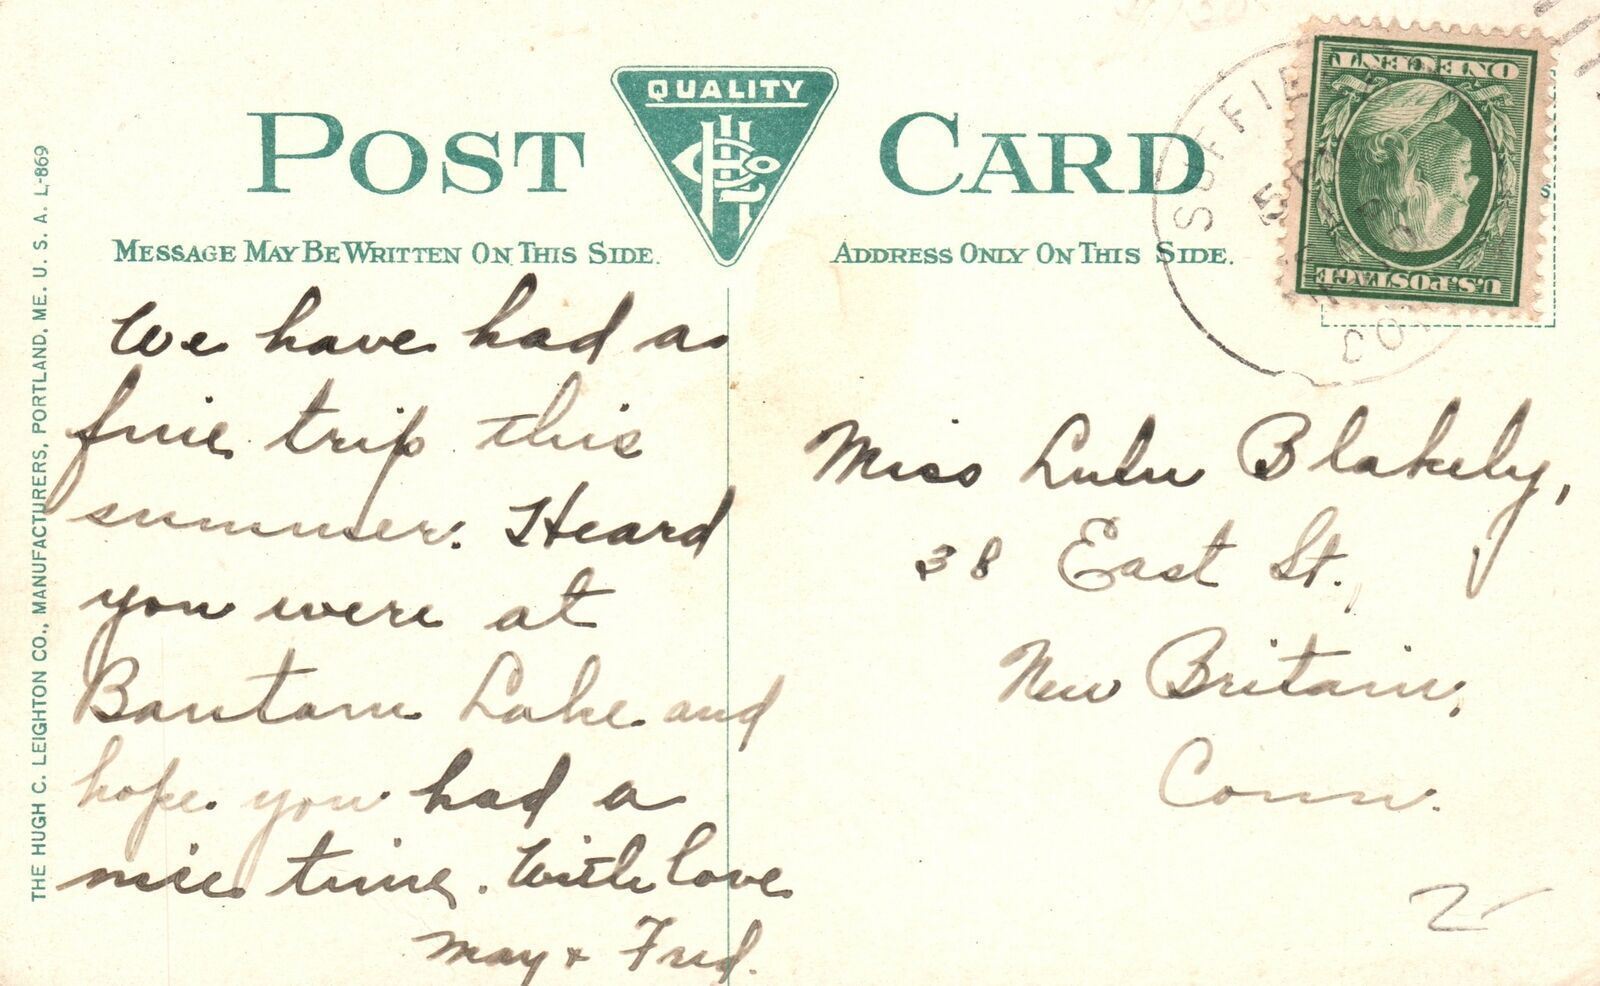 POST CARD
QUALITY
HCL Co
MESSAGE MAY BE WRITTEN ON THIS SIDE.
ADDRESS ONLY ON THIS SIDE.
THE HUGH C. LEIGHTON CO., MANUFACTURERS, PORTLAND, ME. U. S. A. L-869
We have had a
fine trip this
summer. Heard
you were at
Bantam Lake and
hope you had a
nice time. With love
May + Fred.
SUFFIE
CO
ONE CENT
U.S. POSTAGE
S
Miss Lulu Blakely,
38 East St.,
New Britain,
Conn.
2